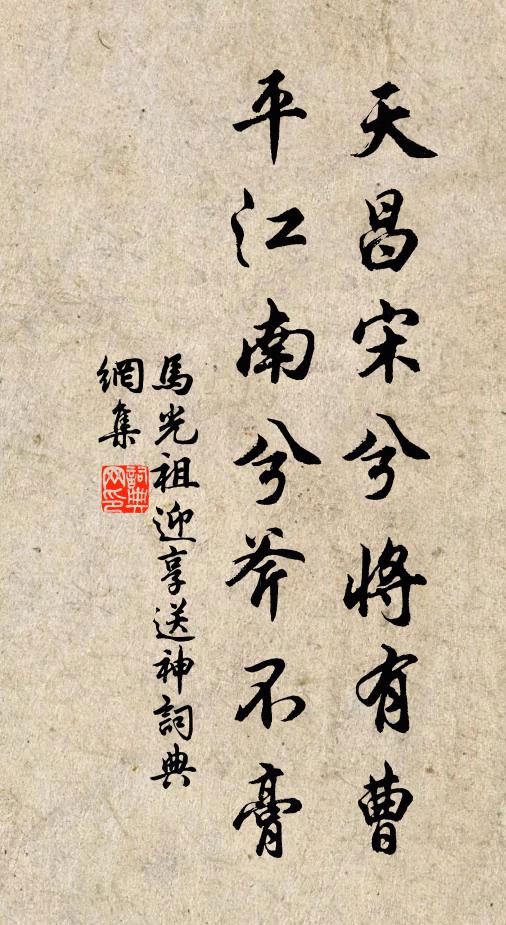 天昌宋兮將有曹
平江南兮斧不膏
馬光祖迎享送神詞典
網集
詞典網印